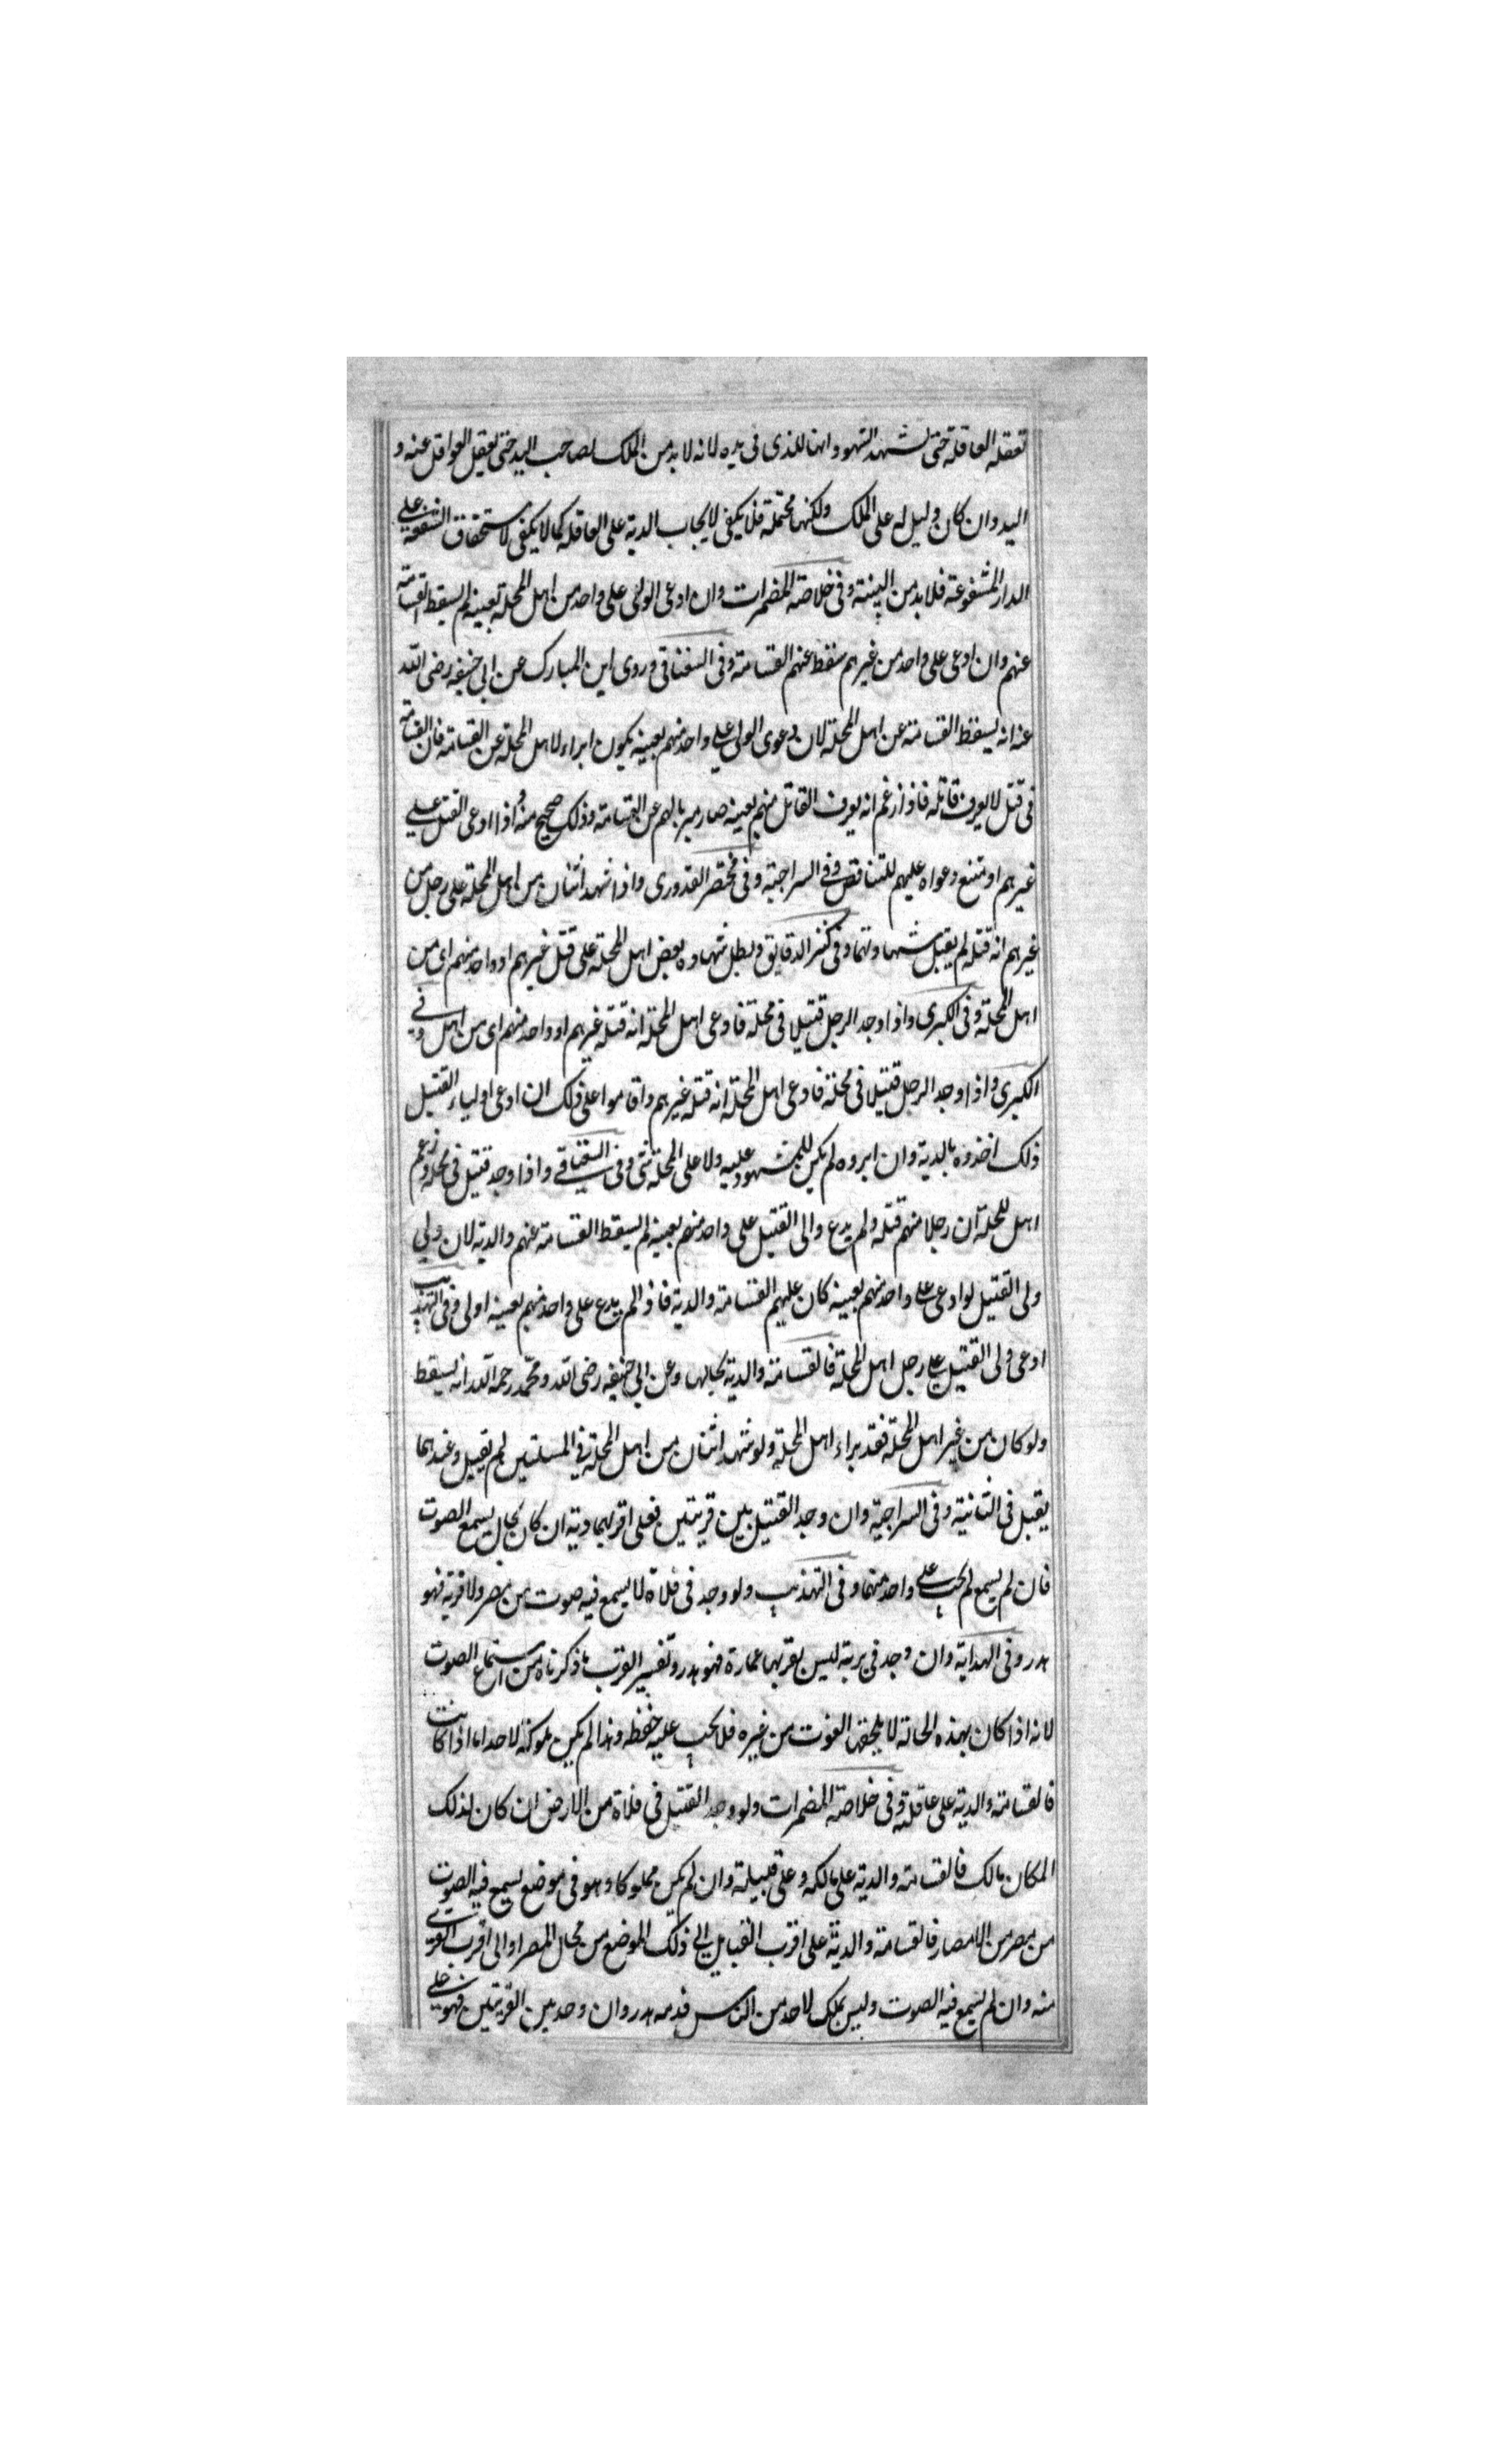 تعقله العاقلة حتى تشهد الشهود انها للذى فى يده لانه لا بد من الملك لصاحب اليد حتى تعقل العواقل عنه و
اليد وان كان دليل له على الملك ولكنها محتملة فلا يكفى لايجاب الدية على العاقله كما لا يكفى لاستحقاق الشفعة على
الدار المشفوعة فلا بد من البينة وفى خلاصة المضمرات وان ادعى الولى على واحد من اهل المحلة بعينه لم يسقط القسامة
عنهم وان ادعى على واحد من غيرهم سقط عنهم القسامة وفى السغناقى وروى ابن المبارك عن ابى حنيفه رضى الله
عنه انه يسقط القسامة عن اهل المحلة لان دعوى الولى على واحد منهم بعينه يكون ابراء لاهل المحلة عن القسامة فان القسامة
فى قتل لا يعرف قاتله فاذا زعم انه يعرف القاتل منهم بعينه صار مبريا لهم عن القسامة وذلك صحيح منه واذا ادعى القتل على
غيرهم امتنع دعواه عليهم للتناقض وفى السراجية وفى مختصر القدورى واذا شهد اثنان من اهل المحلة على رجل من
غيرهم انه قتله لم يقبل شهادتهما وفى كنز الدقايق وبطل شهادة بعض اهل المحلة على قتل غيرهم او واحد منهم اى من
اهل المحلة وفى الكبرى واذا وجد الرجل قتيلا فى محلة فادعى اهل المحلة انه قتله غيرهم او واحد منهم اى من اهل وفى
الكبرى واذا وجد الرجل قتيلا فى محلة فادعى اهل المحلة انه قتله غيرهم واقاموا على ذلك ان ادعى اولياء القتيل
ذلك اخذوه بالدية وان ابروه لم يكن للمشهود عليه ولا على المحلة شى وفى السغناقى واذا وجد قتيل فى محلة وزعم
اهل المحلة ان رجلا منهم قتله ولم يدع والى القتيل على واحد منهم بعينه لم يسقط القسامة عنهم والدية لان ولى
ولى القتيل لو ادعى على واحد منهم بعينه كان عليهم القسامة والدية فاذا لم يدع على واحد منهم بعينه اولى وفى التهذيب
ادعى ولى القتيل على رجل اهل المحلة فالقسامة والدية بحالها وعن ابى حنيفه رضى الله ومحمد رحمه الله انه يسقط
ولو كان من غير اهل المحلة فقد براء اهل المحلة ولو شهد اثنان من اهل المحلة فى المسلتين لم يقبل وعندهما
يقبل فى الثانية وفى السراجية وان وجد القتيل بين قريتين فعلى اقربهما دية ان كان بحال يسمع الصوت
فان لم يسمع لم يجب على واحد منهما وفى التهذيب ولو وجد فى فلاة لا يسمع فيه صوت من مصر ولا قرية فهو
هدر وفى الهداية وان وجد فى برية ليس بقربها عمارة فهو هدر وتفسير القرب ما ذكرناه من استماع الصوت
لانه اذا كان بهذه الحالة لا يلحقه الغوث من غيره فلا يجب عليه حفظه وهذا لم يكن مملوكة لاحد اما اذا كانت
فالقسامة والدية على عاقلته وفى خلاصة المضمرات ولو وجد القتيل فى فلاة من الارض ان كان لذلك
المكان مالك فالقسامة والدية على مالكه وعلى قبيلته وان لم يكن مملوكا وهو فى موضع يسمع فيه الصوت
من مصر من الامصار فالقسامة والدية على اقرب القبايل الى ذلك الموضع من محال المصر او الى اقرب القرى
منه وان لم يسمع فيه الصوت وليس بملك لاحد من الناس فدمه هدر وان وجد بين القريتين فهو على